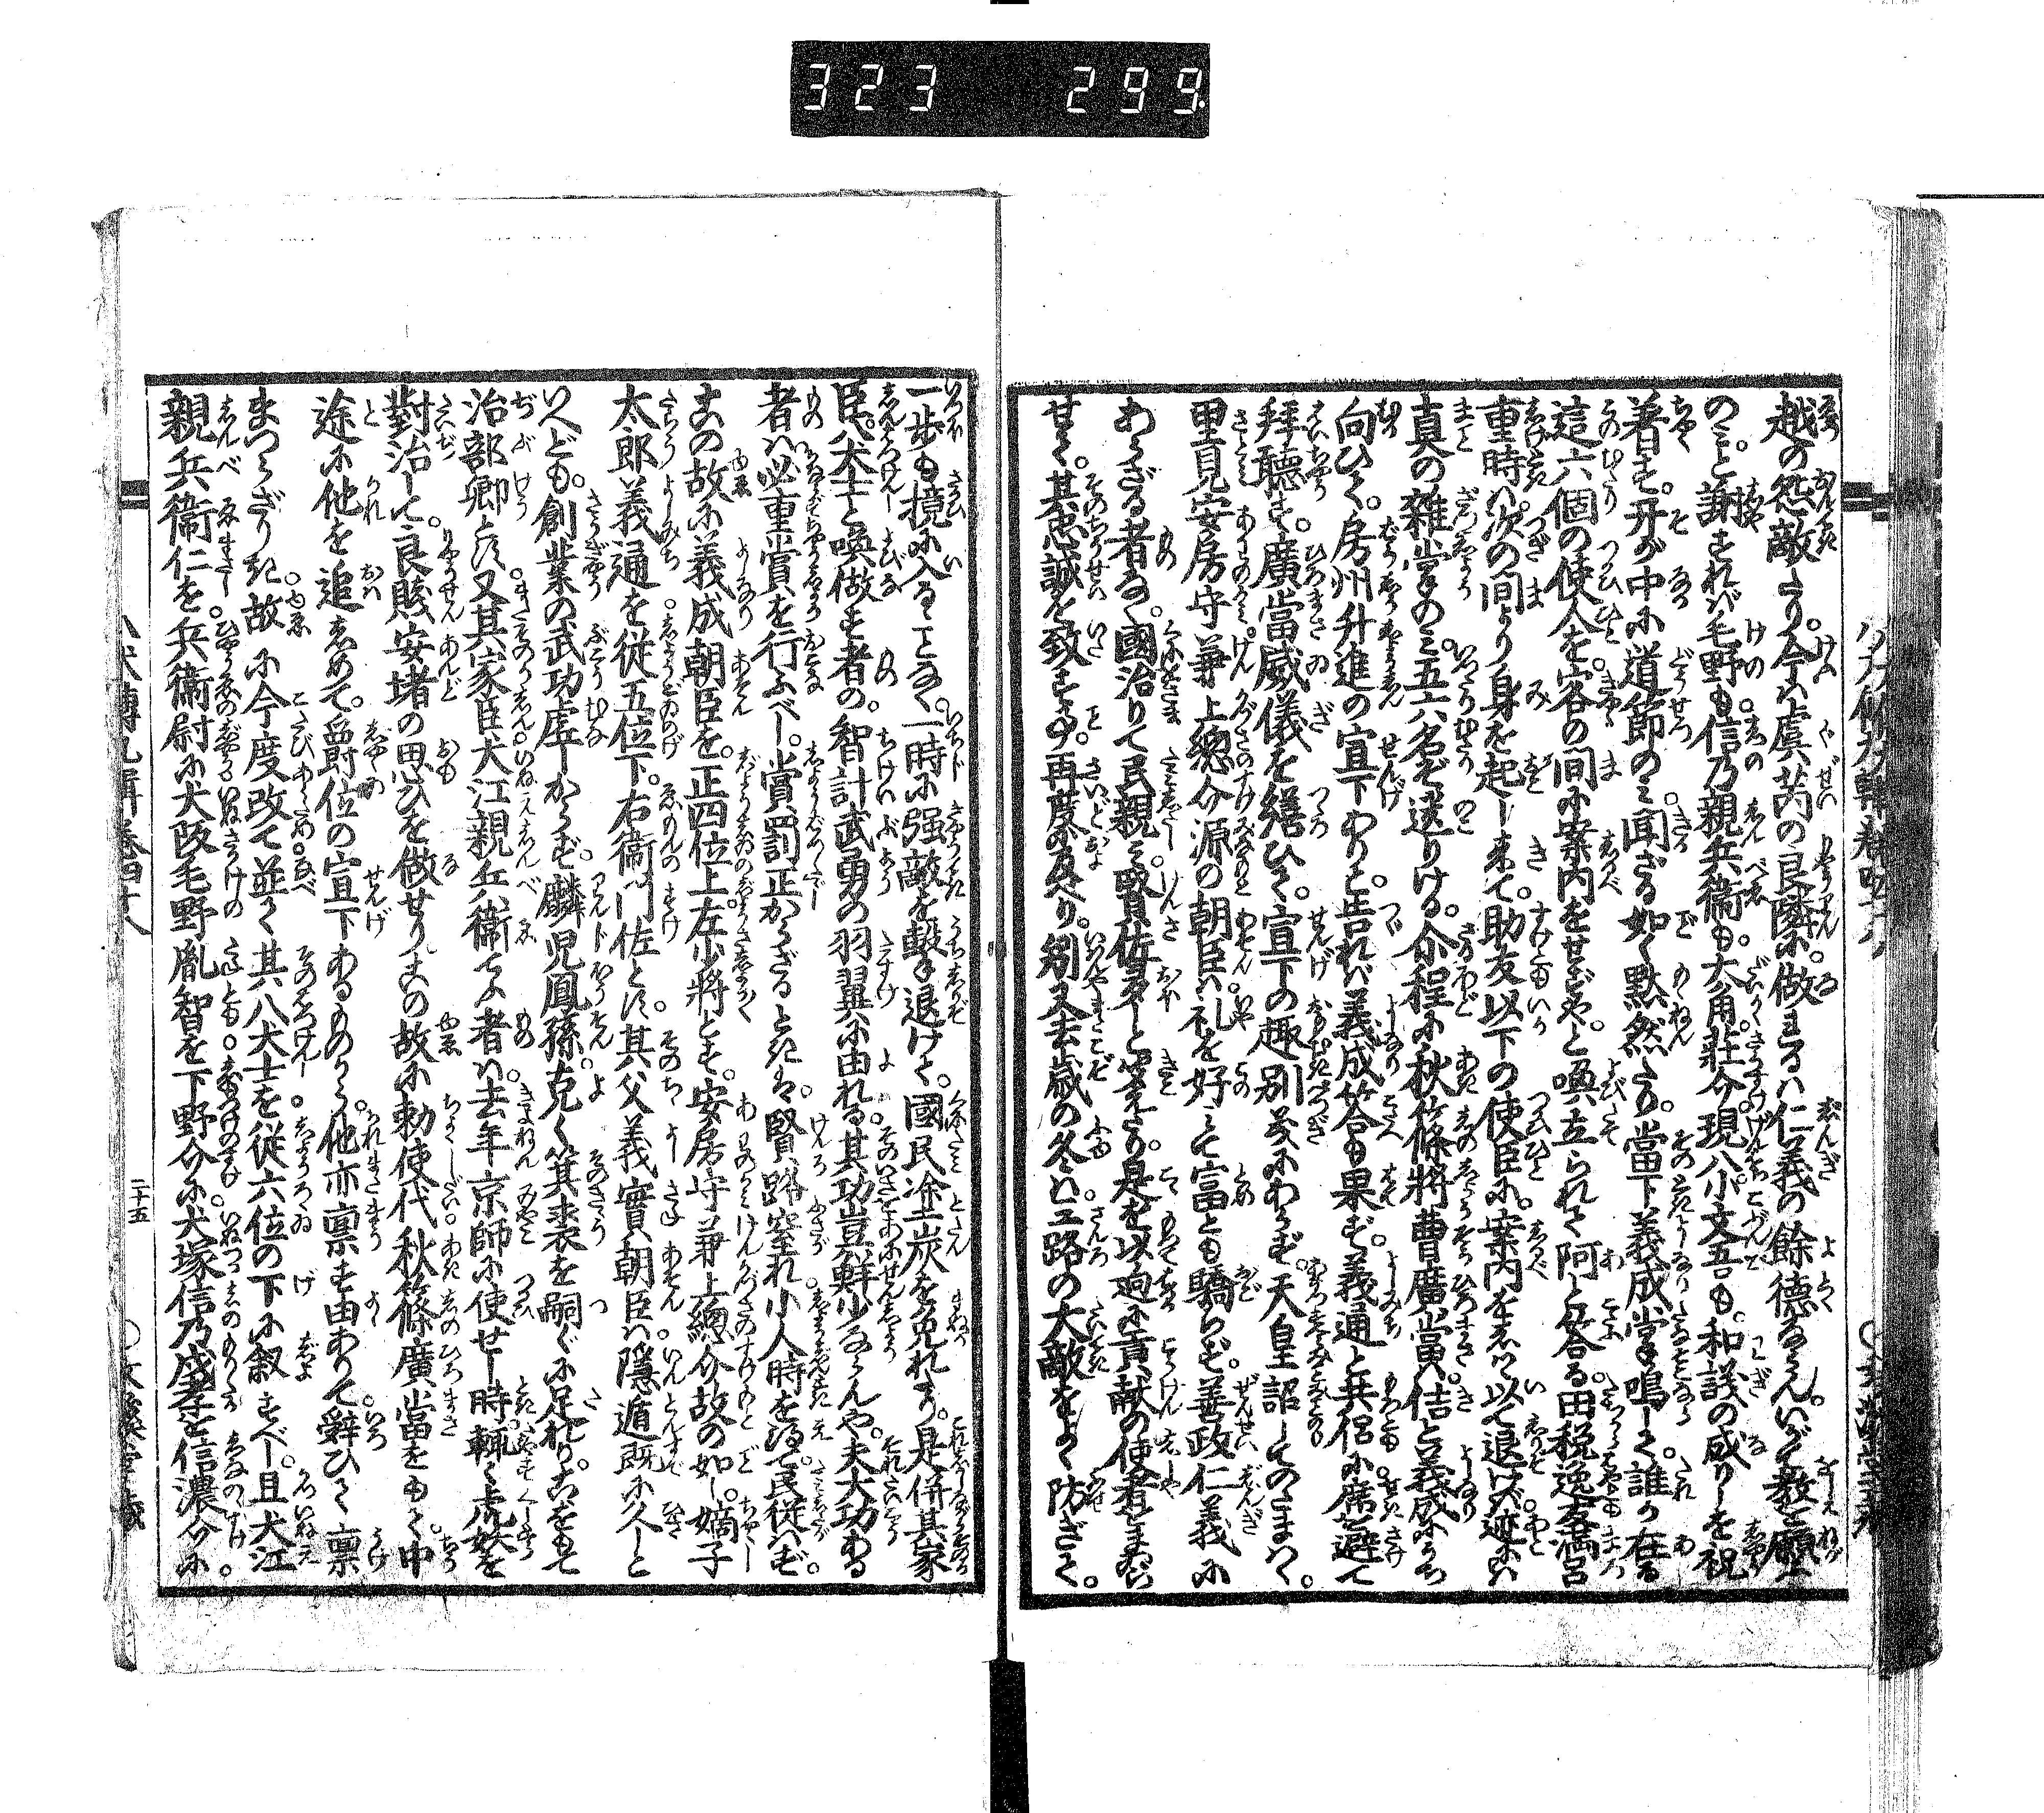 323 299
越の怨敵たり。今は虞芮の良隣に。做まるは仁義の餘德ならん。いかで教を願ふ
のみ。と謝すれば毛野も信乃親兵衞も。大角莊介現八小文吾も。和議の成りしを祝
着す。开が中に道節のミ聞ざる如く默然たり。當下義成掌を鳴して。誰か在る
這六個の使人を。客の間に案内をせずや。と喚立られて阿と答る。田税逸友滿呂
重時は次の間より身を起し來て。助友以下の使臣に。案内をしつゝ以て退けば迹には
真の雜掌のミ。五六名ぞ送りける。介程に秋篠將曹廣當は佶と義成にうち
向ひて。房州升進の宣下あり。と告れば義成答も果ず。義通と共侶に席を避て
拜聽す。廣當威儀を繕ひて。宣下の趣別義にあらず。天皇詔してのたまはく。
里見安房守兼上總介源の朝臣は。礼を好ミて富とも驕らず。善政仁義に
あらざる者なく。國治りて民親ミ賢佐多しと聞えたり。是を以迥に貢献の使者をまゐらせ
甘く。其忠誠を致すこと。再度に及べり。矧又去歳の冬は三路の大敵をよく防ぎて。
一歩も境に入るゝことなく。一時に强敵を轂ち退けて。國民塗炭を免れたり。是併其家
臣。八犬士と喚做す者の。智計武勇の羽翼に由れる。其功豈鮮少ならんや。夫大功ある
者は必重賞を行ふべし。賞罰正からざるときは。賢路窒れ小人時を得て民從はず。
この故に義成朝臣を。正四位上左少將とす。安房守兼上總介故の如し。嫡子
太郎義通を從五位下。右衞門佐とす。其父義實朝臣は。隱遁既に久しと
いへども。創業の武功虚しからず。麟児鳳孫。克く箕裘を嗣ぐに足れり。こをもて
治部卿とす。又其家臣犬江親兵衞てふ者は。去年京師に使せし時。輙く虎妖を
對治して。良賤安堵の思ひを做せり。この故に勅使代秋篠廣當をもて。中
途に他を追しめて。爵位の宣下あるものから。他亦禀す由ありて。辭ひて禀
まつらざりき。故に今度改て並て其八犬士を從六位の下に叙すべし。且犬江
親兵衞仁を兵衞尉に。犬阪毛野胤智を下野介に。犬塚信乃戍孝を信濃介に。
八犬傳九輯卷四十八
二十五